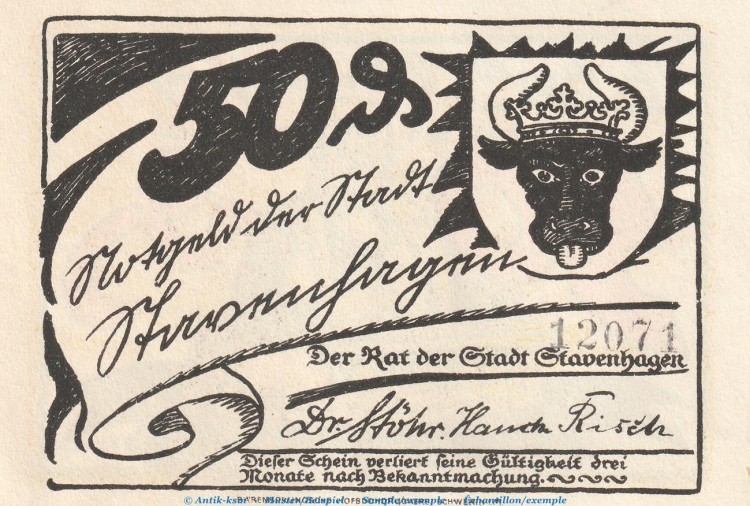 50 ₰
Notgeld der Stadt
Stavenhagen
12071
Der Rat der Stadt Stavenhagen
Dr. Stöhr. Risch
Dieser Schein verliert seine Gültigkeit drei
Monate nach Bekanntmachung.
© Antik-ksbr Muster/Beispiel Sample/example Echantillon/exemple